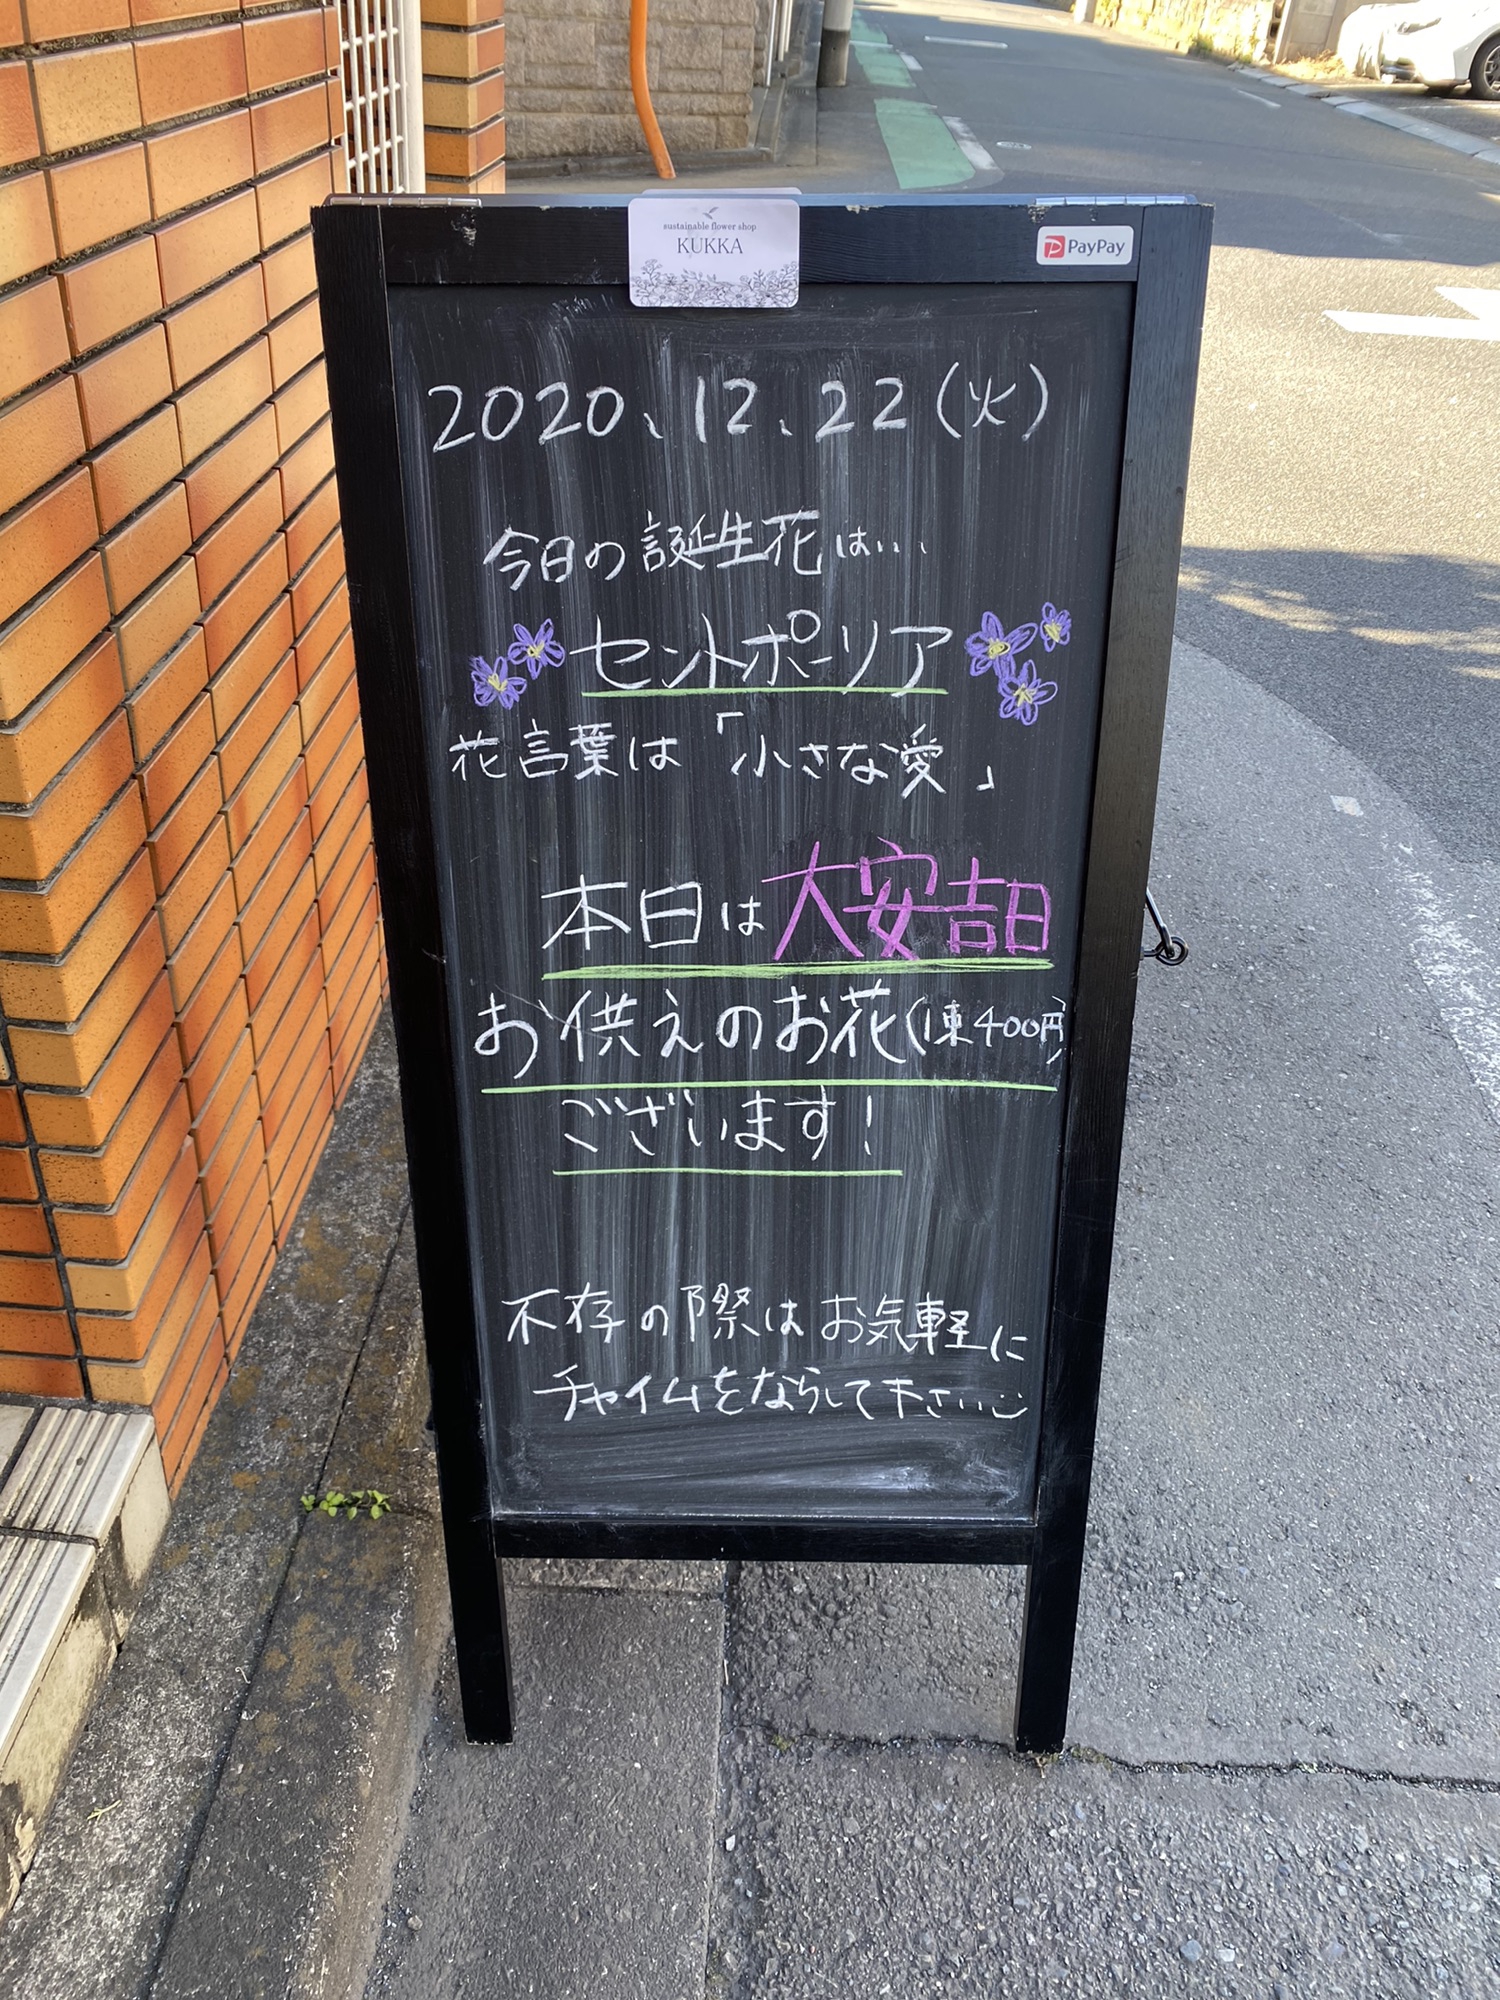 sustainable flower shop
KUKKA
PayPay
2020、12、22（火）
今日の誕生花は…
セントポーリア
花言葉は「小さな愛」
本日は大安吉日
お供えのお花（1束400円）
ございます！
不存の際はお気軽に
チャイムをならして下さい